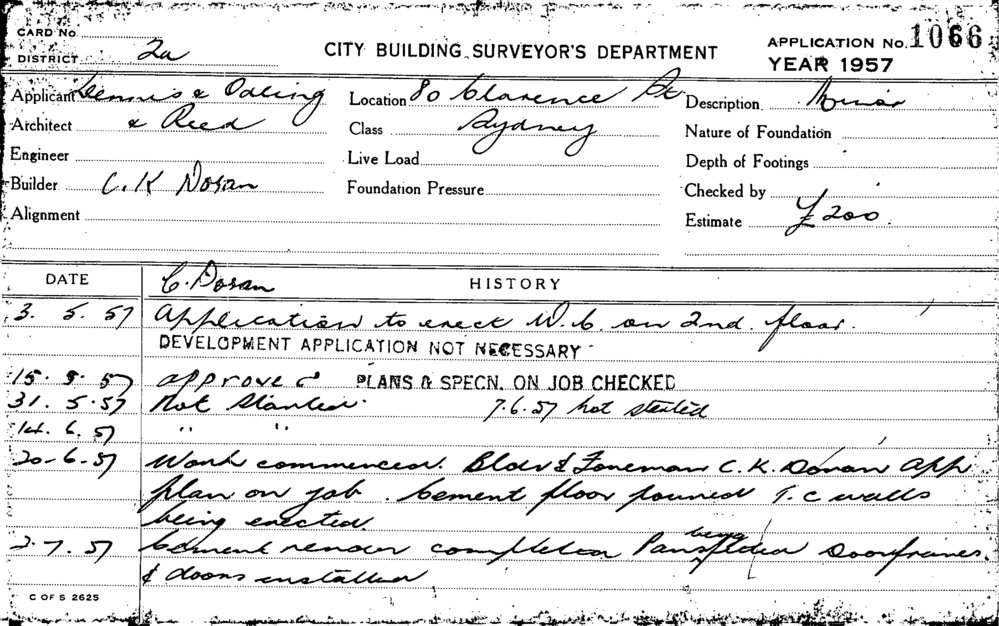 CARD No.
DISTRICT 2a
CITY BUILDING SURVEYOR'S DEPARTMENT
APPLICATION No. 1066
YEAR 1957
Applicant Dennis & Oaling Location 80 Clarence St Description Minor
Architect & Reed Class Sydney Nature of Foundation
Engineer Live Load Depth of Footings
Builder C. K Doran Foundation Pressure Checked by
Alignment Estimate £200.
DATE C. Doran HISTORY
3. 5. 57 Application to erect W.C on 2nd. floor.
DEVELOPMENT APPLICATION NOT NECESSARY
15. 5. 57 approved PLANS & SPECN. ON JOB CHECKED
31. 5. 57 Not Started. 7.6.57 not started
14. 6. 57 " "
20-6-57 Work commenced. Bldr & Foreman C. K. Doran App
plan on job. Cement floor poured T.C walls
being erected
2.7.57 Cement render completed Pans being fitted Doorframes
& doors installed
C OF S 2625